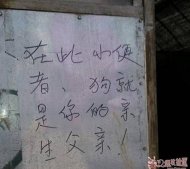 在此小便
者、狗就
是你的亲
生父亲！